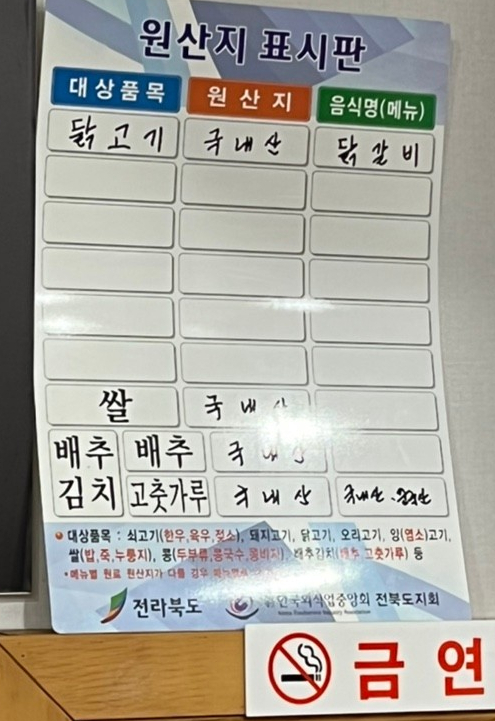 원산지 표시판
대상품목 원산지 음식명(메뉴)
닭고기 국내산 닭갈비
쌀 국내산
배추 배추 국내산
김치 고춧가루 국내산 국내산.
• 대상품목 : 쇠고기(한우,육우,젖소), 돼지고기, 닭고기, 오리고기, 양(염소)고기,
쌀(밥,죽,누룽지), 콩(두부류,콩국수,콩비지), 배추김치(배추 고춧가루) 등
*메뉴별 원료 원산지가 다를 경우
전라북도 한국외식업중앙회 전북도지회
금연